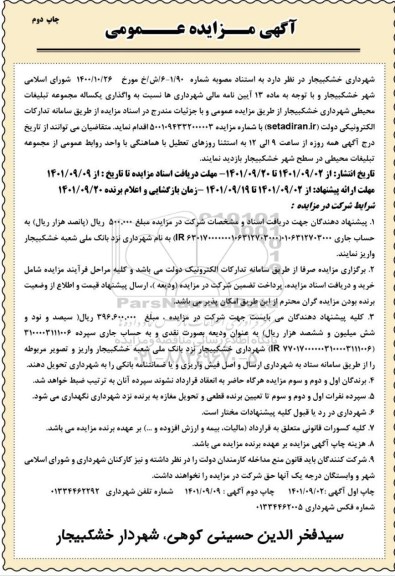 چاپ دوم
آگهی مـــزایده عـــمومی
شهرداری خشکبیجار در نظر دارد به استناد مصوبه شماره ۶-۱/۹۰/ش/خ مورخ ۱۴۰۰/۱۰/۲۶ شورای اسلامی
شهر خشکبیجار و با توجه به ماده ۱۳ آیین نامه مالی شهرداری ها نسبت به واگذاری یکساله مجموعه تبلیغات
محیطی شهرداری خشکبیجار از طریق مزایده عمومی و با جزئیات مندرج در اسناد مزایده از طریق سامانه تدارکات
الکترونیکی دولت (setadiran.ir) با شماره مزایده ۵۰۰۱۰۹۴۳۳۲۰۰۰۰۰۳ اقدام نماید. متقاضیان می توانند از تاریخ
درج آگهی همه روزه از ساعت ۹ الی ۱۲ به استثنا روزهای تعطیل با هماهنگی با واحد روابط عمومی از مجموعه
تبلیغات محیطی در سطح شهر خشکبیجار بازدید نمایند.
تاریخ انتشار: از ۱۴۰۱/۰۹/۰۲ تا ۱۴۰۱/۰۹/۲۰ – مهلت دریافت اسناد مزایده تا تاریخ : از ۱۴۰۱/۰۹/۰۹
مهلت ارائه پیشنهاد: از ۱۴۰۱/۰۹/۰۲ تا ۱۴۰۱/۰۹/۱۹ –زمان بازگشایی و اعلام برنده ۱۴۰۱/۰۹/۲۰
شرایط شرکت در مزایده :
۱. پیشنهاد دهندگان جهت دریافت اسناد و مشخصات شرکت در مزایده مبلغ ۵۰۰.۰۰۰ ریال (پانصد هزار ریال) به
حساب جاری ۰۱۰۶۳۱۲۷۰۳۰۰۰ به نام شهرداری نزد بانک ملی شعبه خشکبیجار
واریز نمایند.
۲. برگزاری مزایده صرفا از طریق سامانه تدارکات الکترونیک دولت می باشد و کلیه مراحل فرآیند مزایده شامل
خرید و دریافت اسناد مزایده، پرداخت تضمین شرکت در مزایده (ودیعه )، ارسال پیشنهاد قیمت و اطلاع از وضعیت
برنده بودن مزایده گران محترم از این طریق امکان پذیر می باشد.
۳. کلیه پیشنهاد دهندگان می بایست جهت شرکت در مزایده ، مبلغ ۳۹۶.۶۰۰.۰۰۰ ریال( سیصد و نود و
شش میلیون و ششصد هزار ریال) به عنوان ودیعه بصورت نقدی و به حساب جاری سپرده ۳۱۰۰۰۰۳۱۱۱۰۰۶
شهرداری خشکبیجار نزد بانک ملی شعبه خشکبیجار واریز و تصویر مربوطه
را از طریق سامانه ستاد به شهرداری ارسال و اصل فیش واریزی و یا ضمانتنامه بانکی را به شهرداری تحویل دهند.
۴. برندگان اول و دوم و سوم مزایده هرگاه حاضر به انعقاد قرارداد نشوند سپرده آنان به ترتیب ضبط خواهد شد.
۵. سپرده نفرات اول و دوم و سوم تا تعیین برنده قطعی و تحویل مغازه به برنده نزد شهرداری نگهداری می شود.
۶. شهرداری در رد یا قبول کلیه پیشنهادات مختار است.
۷. کلیه کسورات قانونی متعلق به قرارداد (مالیات، بیمه و ارزش افزوده و ...) بر عهده برنده مزایده می باشد.
۸. هزینه چاپ آگهی مزایده بر عهده برنده مزایده می باشد.
۹. شرکت کنندگان باید قانون منع مداخله کارمندان دولت را در نظر داشته و نیز کارکنان شهرداری و شورای اسلامی
شهر و وابستگان درجه یک آنها حق شرکت در مزایده را نخواهند داشت.
چاپ اول آگهی :۱۴۰۱/۰۹/۰۲ چاپ دوم آگهی : ۱۴۰۱/۰۹/۰۹ شماره تلفن شهرداری ۰۱۳۳۴۴۶۲۲۹۲
شماره فکس شهرداری ۰۱۳۳۴۴۶۲۰۰۵
سیدفخر الدین حسینی کوهی، شهردار خشکبیجار